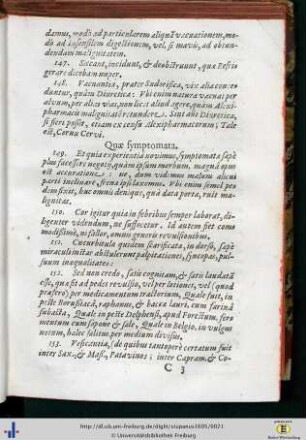 damus, modò ad particularem aliquã vacuationem, mo-
dò ad insensilem digestionem, vel, si mavis, ad obtun-
dendam malignitatem.
147. Siccant, incidunt, & deobstruunt, qua Pesti o
gerare dicebam nuper.
148. Vacuantia, prater Sudorifica, vix alia con
duntur, quàm Diuretica: Vbi enim natura vacuat per
alvum, per alias vias, non licet aliud agere, quàm Alexi
pharmacis malignitatẽ retundere. Sint autẽ Diuretica,
si fieri possit, etiam ex censu Alexipharmacorum; Tale
est, Cornu Cervi.
Quæ symptomata.
149. Et quia experientia novimus, symptomata sapè
plus facessere negotij, quàm ipsum morbum, magnâ opus
est accuratione: ne, dum vidimus malum alicui
parti inclinare, frena ipsi laxemus. Vbi enim semel pe
dem fixit, huc omnis denique, quâ data porta, ruit ma-
lignitas.
150. Cor igitur quia in febribus semper laborat, di-
ligenter videndum, ne suffocetur. Id autem fiet como
modissimè, ni fallor, omnis generis revulsionibus.
151. Cucurbitula quidem scarificata, in dorso, sapè
miraculi instar abstulerunt palpitationes, syncopas, pul-
suum inæqualitates:
152. Sed non credo, satis cognitam, & satis laudatã
esse, qua fit ad pedes revulsio, vel per lotiones, vel (quod
prafero) per medicamentum tractorium, Quale fuit, in
peste Borussiacâ, raphanus, & bacca lauri, cum farinâ
subacta, Quale in peste Delphensi, apud Forestum, fer-
mentum cum sapone & sale, Quale in Belgio, in vulgus
notum, halec salitus per medium divisus.
153. Vesicantia, de quibus tantoperè certatum fuit
inter Sax. & Mass. Patavinos; inter Capram & Co-
C 3
http://dl.ub.uni-freiburg.de/diglit/stupanus1605/0021
© Universitätsbibliothek Freiburg